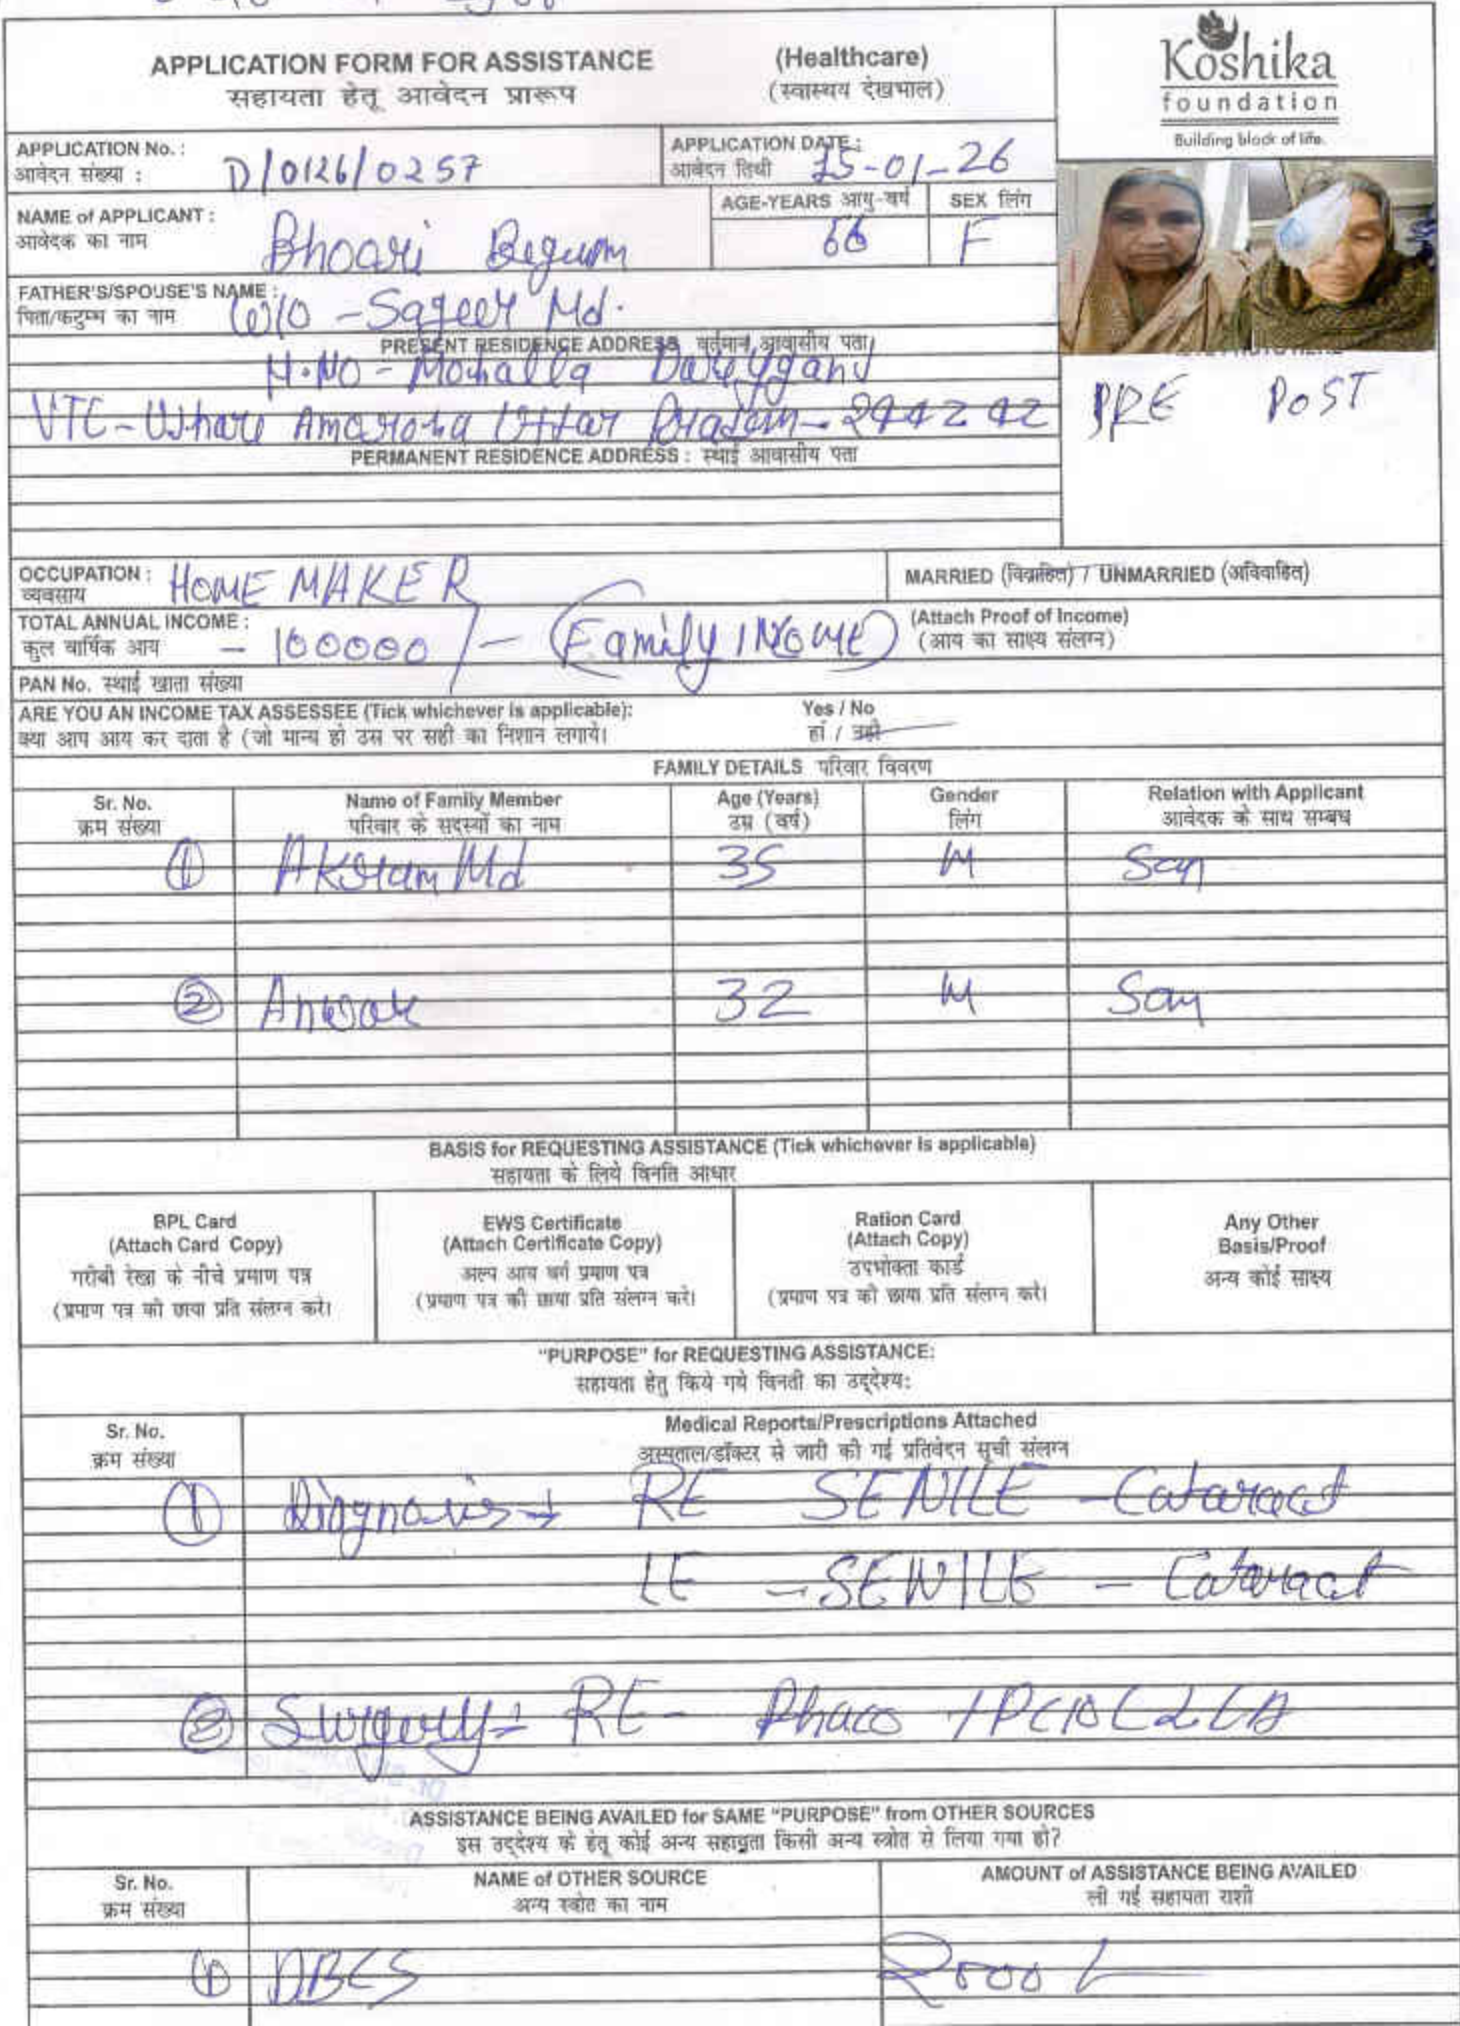 APPLICATION FORM FOR ASSISTANCE (Healthcare)
सहायता हेतू आवेदन प्रारूप (स्वास्थय देखभाल)
Koshika
foundation
Building block of life.
APPLICATION No. : D/0126/0257
आवेदन संख्या :
APPLICATION DATE : 15-01-26
आवेदन तिथी
NAME of APPLICANT : Bhoari Begum
आवेदक का नाम
AGE-YEARS आयु-वर्ष 66
SEX लिंग F
FATHER'S/SPOUSE'S NAME : W/O - Sageer Md.
पिता/कटुम्ब का नाम
PRESENT RESIDENCE ADDRESS वर्तमान आवासीय पता
H.NO - Mohalla
VTC - Amaroha Uttar Pradesh - 244242
PRE POST
PERMANENT RESIDENCE ADDRESS : स्थाई आवासीय पता
OCCUPATION : HOME MAKER
व्यवसाय
MARRIED (विवाहित) / UNMARRIED (अविवाहित)
TOTAL ANNUAL INCOME :
कुल वार्षिक आय - 100000/- (Family INOME)
(Attach Proof of Income)
(आय का साक्ष्य संलग्न)
PAN No. स्थाई खाता संख्या
ARE YOU AN INCOME TAX ASSESSEE (Tick whichever is applicable): Yes / No
क्या आप आय कर दाता है (जो मान्य हो उस पर सही का निशान लगाये। हां / नहीं
FAMILY DETAILS परिवार विवरण
Sr. No. Name of Family Member Age (Years) Gender Relation with Applicant
क्रम संख्या परिवार के सदस्यों का नाम उम्र (वर्ष) लिंग आवेदक के साथ सम्बध
1 Akram Md 35 M Son
2 Anwar 32 M Son
BASIS for REQUESTING ASSISTANCE (Tick whichever is applicable)
सहायता के लिये विनति आधार
BPL Card
(Attach Card Copy)
गरीबी रेखा के नीचे प्रमाण पत्र
(प्रमाण पत्र की छाया प्रति संलग्न करे।
EWS Certificate
(Attach Certificate Copy)
अल्प आय वर्ग प्रमाण पत्र
(प्रमाण पत्र की छाया प्रति संलग्न करे।
Ration Card
(Attach Copy)
उपभोक्ता कार्ड
(प्रमाण पत्र की छाया प्रति संलग्न करे।
Any Other
Basis/Proof
अन्य कोई साक्ष्य
"PURPOSE" for REQUESTING ASSISTANCE:
सहायता हेतु किये गये विनती का उद्देश्य:
Sr. No. Medical Reports/Prescriptions Attached
क्रम संख्या अस्पताल/डॉक्टर से जारी की गई प्रतिवेदन सूची संलग्न
1 Diagnosis → RE SENILE - Cataract
LE - SENILE - Cataract
2 Surgery: RE - Phaco
ASSISTANCE BEING AVAILED for SAME "PURPOSE" from OTHER SOURCES
इस उद्देश्य के हेतू कोई अन्य सहायता किसी अन्य स्त्रोत से लिया गया हो?
Sr. No. NAME of OTHER SOURCE AMOUNT of ASSISTANCE BEING AVAILED
क्रम संख्या अन्य स्त्रोत का नाम ली गई सहायता राशी
1 DBCS 2000/-